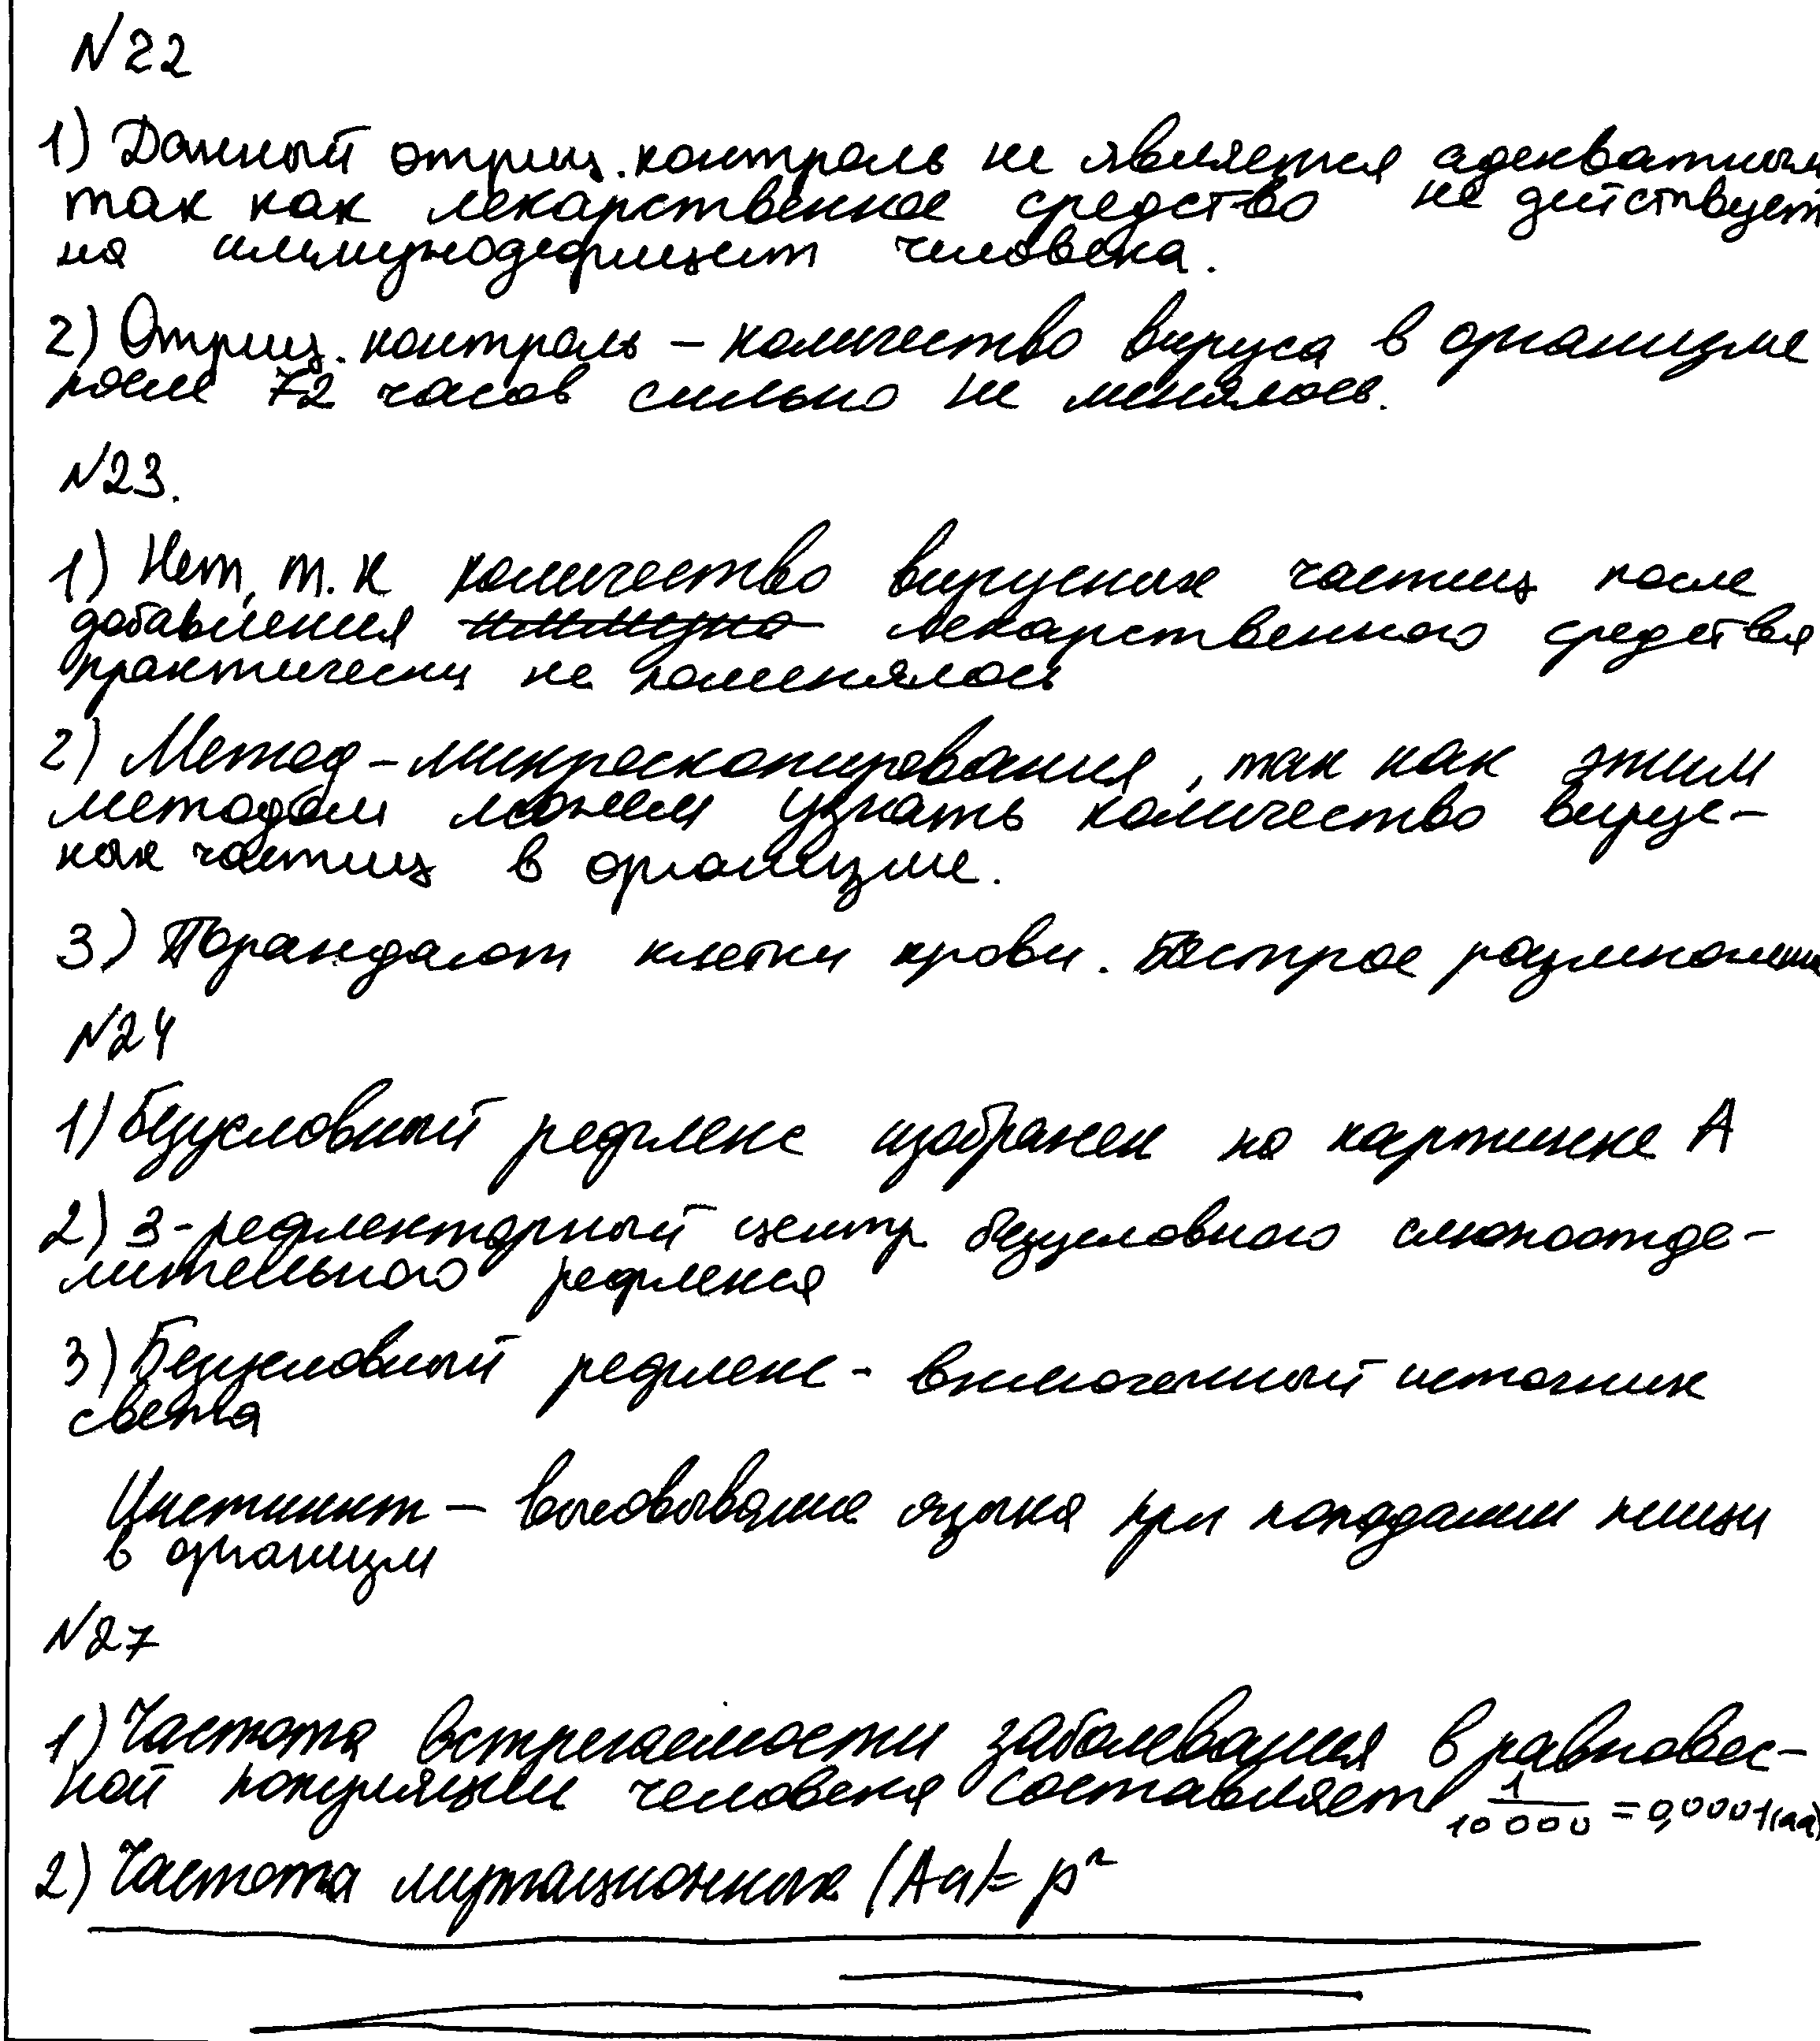 №22
1) Данный отриц. контроль не является адекватным
так как лекарственное средство не действует
на иммунодефицит человека.
2) Отриц. контроль – количество вируса в организме
после 72 часов сильно не менялось.
№23.
1) Нет, т.к количество вирусных частиц после
добавления лекарственного средства
практически не поменялось
2) Метод – микроскопирования, так как этим
методом можем узнать количество вирус-
ных частиц в организме.
3) Поражают клетки крови. Быстрое размножение
№24
1) Безусловный рефлекс изображен на картинке А
2) 3-рефлекторный центр безусловного слюноотде-
лительного рефлекса
3) Безусловный рефлекс - включенный источник
света
Инстинкт – высовывание языка при попадании пищи
в организм
№27
1) Частота встречаемости заболевания в равновес-
ной популяции человека составляет 1/10000 = 0,0001(aa)
2) Частота мутационных (Aa)= p²